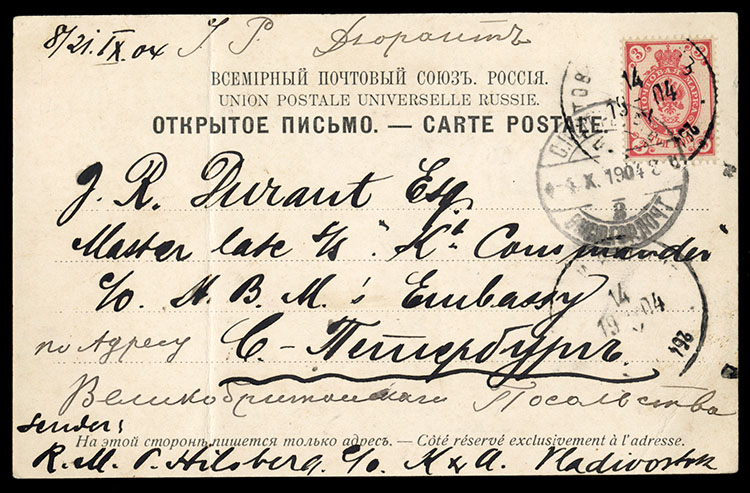 8/21.IX.04 J. Р. Дюрантъ
ВСЕМІРНЫЙ ПОЧТОВЫЙ СОЮЗЪ. РОССІЯ.
UNION POSTALE UNIVERSELLE RUSSIE.
ОТКРЫТОЕ ПИСЬМО. — CARTE POSTALE.
3 3
14
19 04
264
J. R. Durant Esq.
X. 1904
Master late s/s "Kt Commander
c/o H. B. M.'s Embassy
14
19 04
264
по Адресу С-Петербургъ
Великобританскаго Посольства
Sender:
На этой сторонѣ пишется только адресъ. — Côté réservé exclusivement à l'adresse.
R. M. P. Hilsberg. c/o K & A. Vladivostok